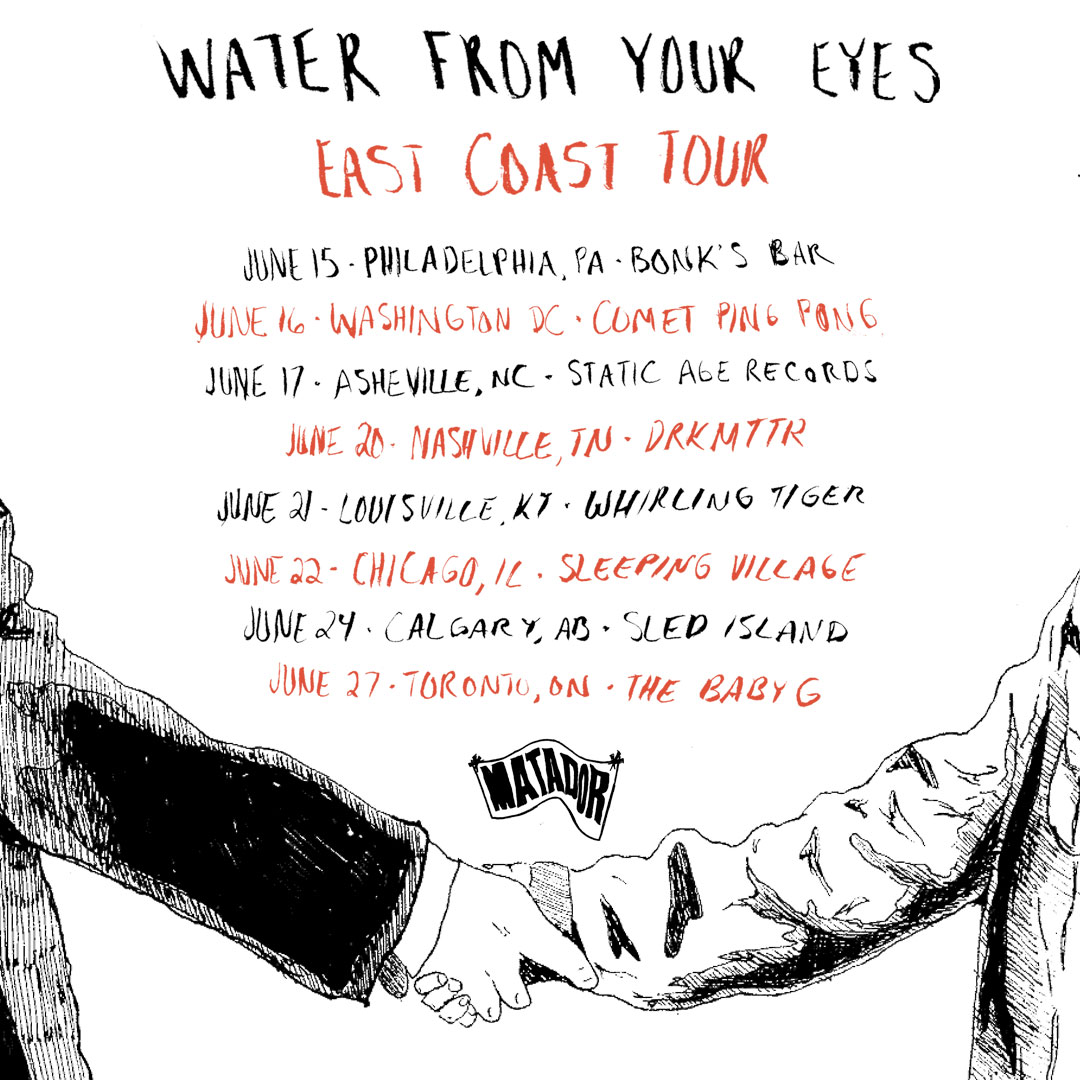 WATER FROM YOUR EYES
EAST COAST TOUR
JUNE 15 - PHILADELPHIA, PA - BONK'S BAR
JUNE 16 - WASHINGTON DC - COMET PING PONG
JUNE 17 - ASHEVILLE, NC - STATIC AGE RECORDS
JUNE 20 - NASHVILLE, TN - DRKMTTR
JUNE 21 - LOUISVILLE, KY - WHIRLING TIGER
JUNE 22 - CHICAGO, IL - SLEEPING VILLAGE
JUNE 24 - CALGARY, AB - SLED ISLAND
JUNE 27 - TORONTO, ON - THE BABY G
MATADOR